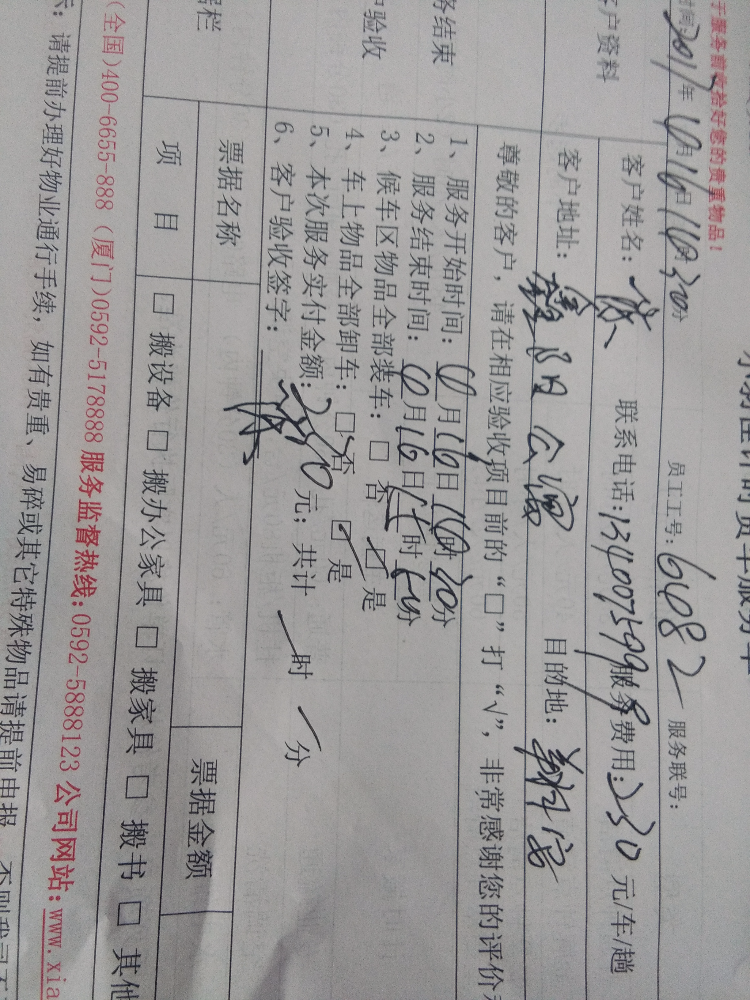 小别在计时货车服务单
于服务前收拾好您的贵重物品！
时间：2011年10月16日16时30分 员工工号：6082 服务联号：
客户资料
客户姓名： 联系电话： 服务费用：230 元/车/趟
客户地址： 公寓 目的地：
尊敬的客户，请在相应验收项目前的“□”打“√”，非常感谢您的评价
务结束
户验收
1、服务开始时间：10月16日16时30分
2、服务结束时间：10月16日 时 分
3、候车区物品全部装车：□ 否 ☑ 是
4、车上物品全部卸车：□ 否 ☑ 是
5、本次服务实付金额：230 元；共计 时 分
6、客户验收签字：
据栏
票据名称 票据金额
项 目 □ 搬设备 □ 搬办公家具 □ 搬家具 □ 搬书 □ 其他
(全国)400-6655-888 (厦门)0592-5178888 服务监督热线：0592-5888123 公司网站：www.xia
示：请提前办理好物业通行手续，如有贵重、易碎或其它特殊物品请提前申报，否则我司不